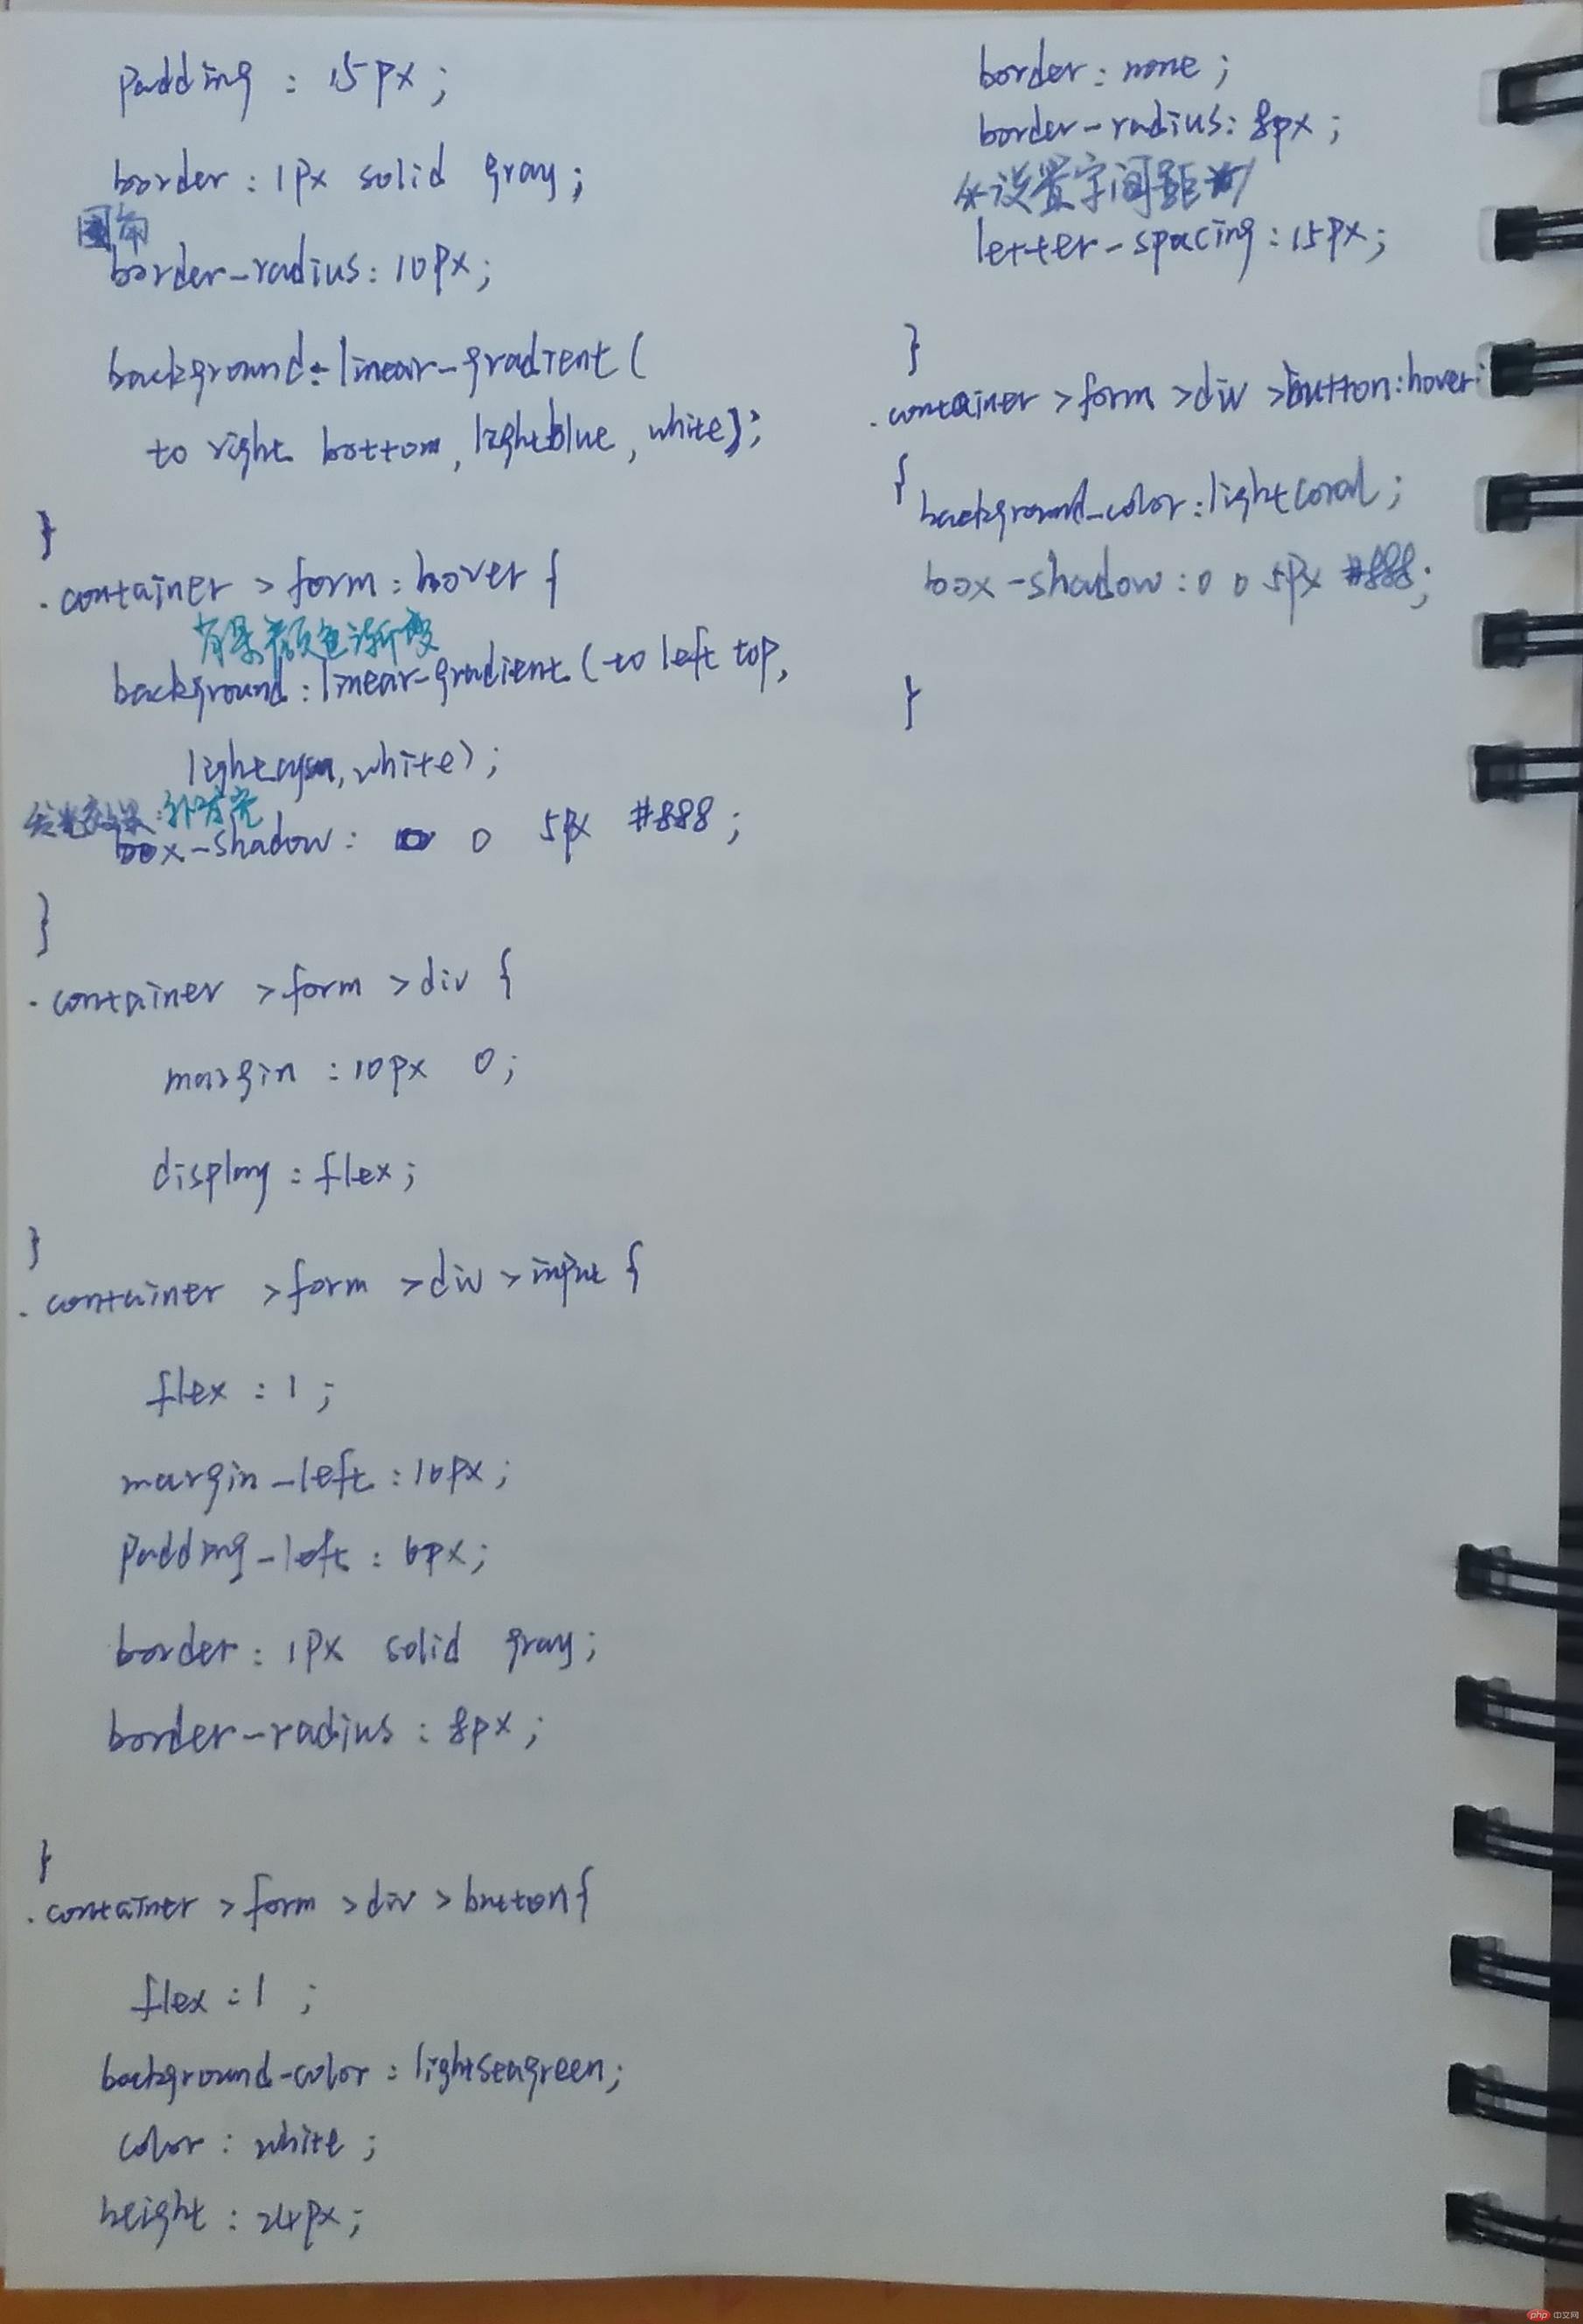 padding : 15px ;
border : 1px solid gray ;
圆角
border-radius : 10px ;
background : linear-gradient (
to right bottom , lightblue , white ) ;
}
.container > form : hover {
背景颜色渐变
background : linear-gradient ( to left top ,
lightcyan , white ) ;
发光效果 : 外发光
box-shadow : 0 0 5px #888 ;
}
.container > form > div {
margin : 10px 0 ;
display : flex ;
}
.container > form > div > input {
flex : 1 ;
margin-left : 10px ;
padding-left : 6px ;
border : 1px solid gray ;
border-radius : 8px ;
}
.container > form > div > button {
flex : 1 ;
background-color : lightseagreen ;
color : white ;
height : 24px ;
border : none ;
border-radius : 8px ;
/* 设置字间距 */
letter-spacing : 15px ;
}
.container > form > div > button : hover :
{
background-color : lightcoral ;
box-shadow : 0 0 5px #888 ;
}
php 中文网